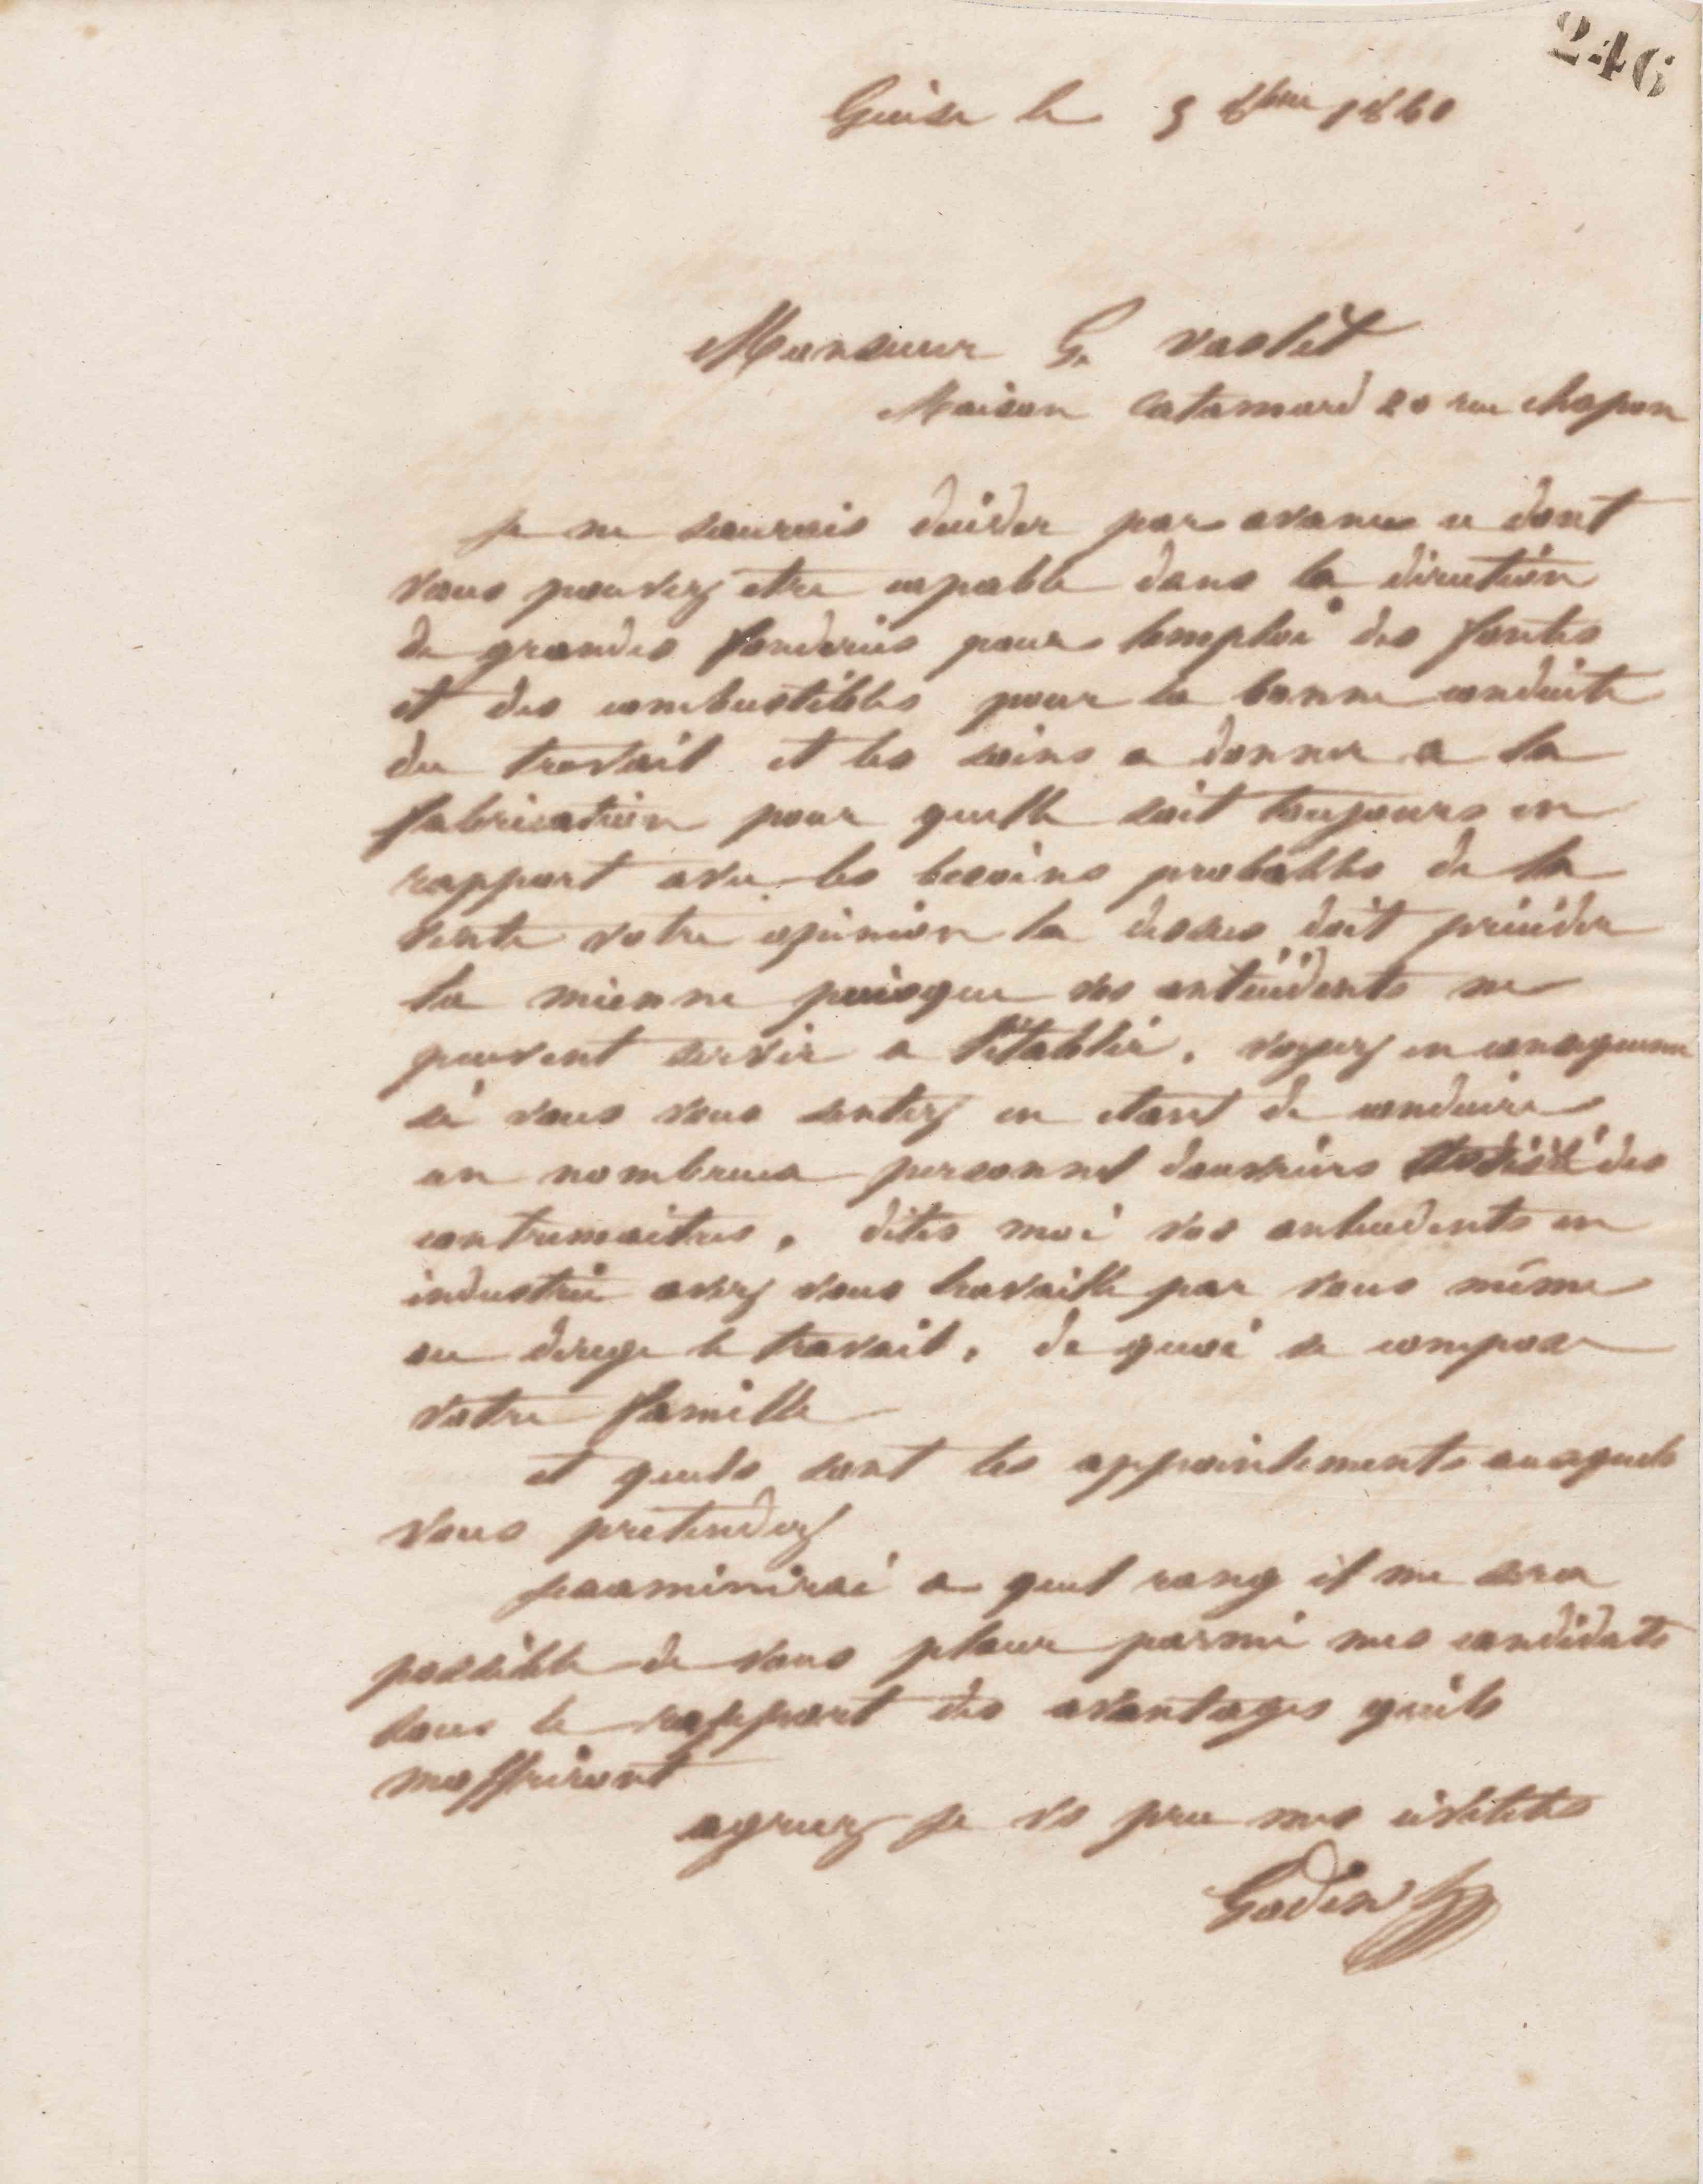 246
Guise le 5 8bre 1860
Monsieur G. Vaslet
Maison Catamard 20 rue chapon
je ne saurais decider par avance ce dont
vous pouvez etre capable dans la direction
de grandes fonderies pour lemploi des fontes
et des combustibles pour la bonne conduite
du travail et les soins a donner a la
fabrication pour quelle soit toujours en
rapport avec les besoins probables de la
vente votre opinion la dessus doit précéder
la mienne puisque vos antécédents ne
peuvent servir a l'établir. voyez en consequence
si vous vous sentez en etat de conduire
un nombreux personnel douvriers des
contremaitres. dites moi vos antecedents en
industrie avez vous travaille par vous même
ou dirige le travail. de quoi se compose
votre famille
et quels sont les appointements auxquels
vous pretendez
jexaminerai a quel rang il me sera
possible de vous placer parmi mes candidats
sous le rapport des avantages quils
moffriront
agreez je vs prie mes civilites
Godin